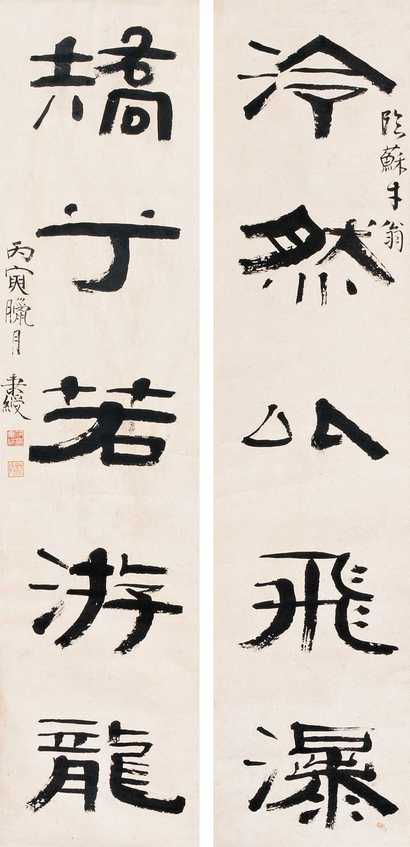 泠然以飛瀑
臨蘇才翁
矯兮若游龍
丙寅臘月 秉綬